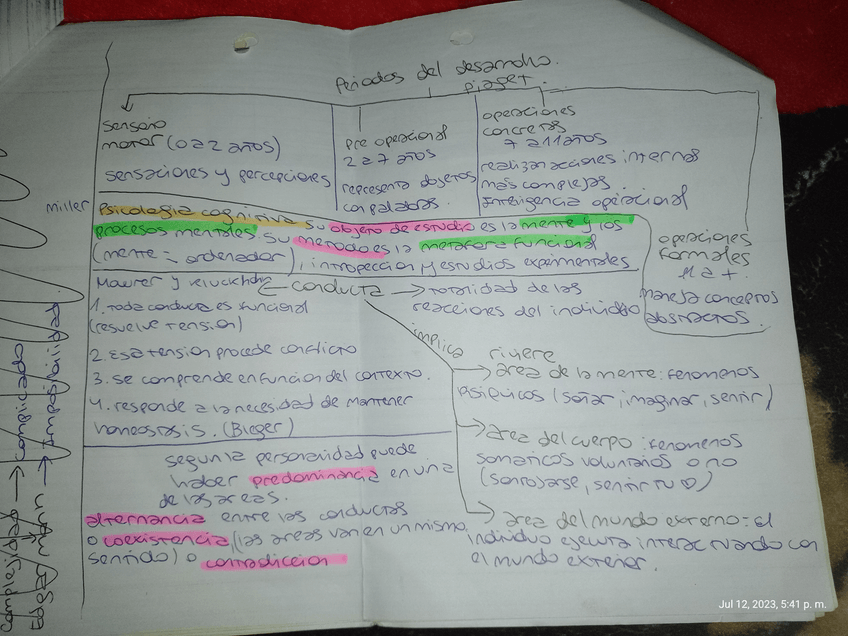 Periodos del desarrollo.
piaget.
sensorio
motor (0 a 2 años)
sensaciones y percepciones
pre operacional
2 a 7 años
representa objetos
con palabras.
operaciones
concretas
7 a 11 años
realizan acciones internas
más complejas.
Inteligencia operacional
operaciones
formales
11 a +.
maneja conceptos
abstractos.
miller
Psicologia cognitiva su objeto de estudio es la mente y los
procesos mentales. Su metodo es la metafora funcional
(mente = ordenador), intropección y estudios experimentales
Maurer y kluckhohn ← conducta → totalidad de las
reacciones del individuo
1. Toda conducta es funcional
(resuelve tensión)
2. Esa tension procede conflicto
3. se comprende en funcion del contexto.
4. responde a la necesidad de mantener
homeostasis. (Bleger)
implica
riviere
→ area de la mente: fenomenos
psiquicos (soñar, imaginar, sentir)
→ area del cuerpo: fenomenos
somaticos voluntarios o no
(sonrojarse, sentir tu ♡)
→ area del mundo externo: el
individuo ejecuta interactuando con
el mundo exterior.
segun la personalidad puede
haber predominancia en una
de las areas.
alternancia entre las conductas
o coexistencia, (las areas van en un mismo
sentido) o contradiccion
Complejidad → complicado
Edgar Morin → Imposibilidad.
Jul 12, 2023, 5:41 p. m.